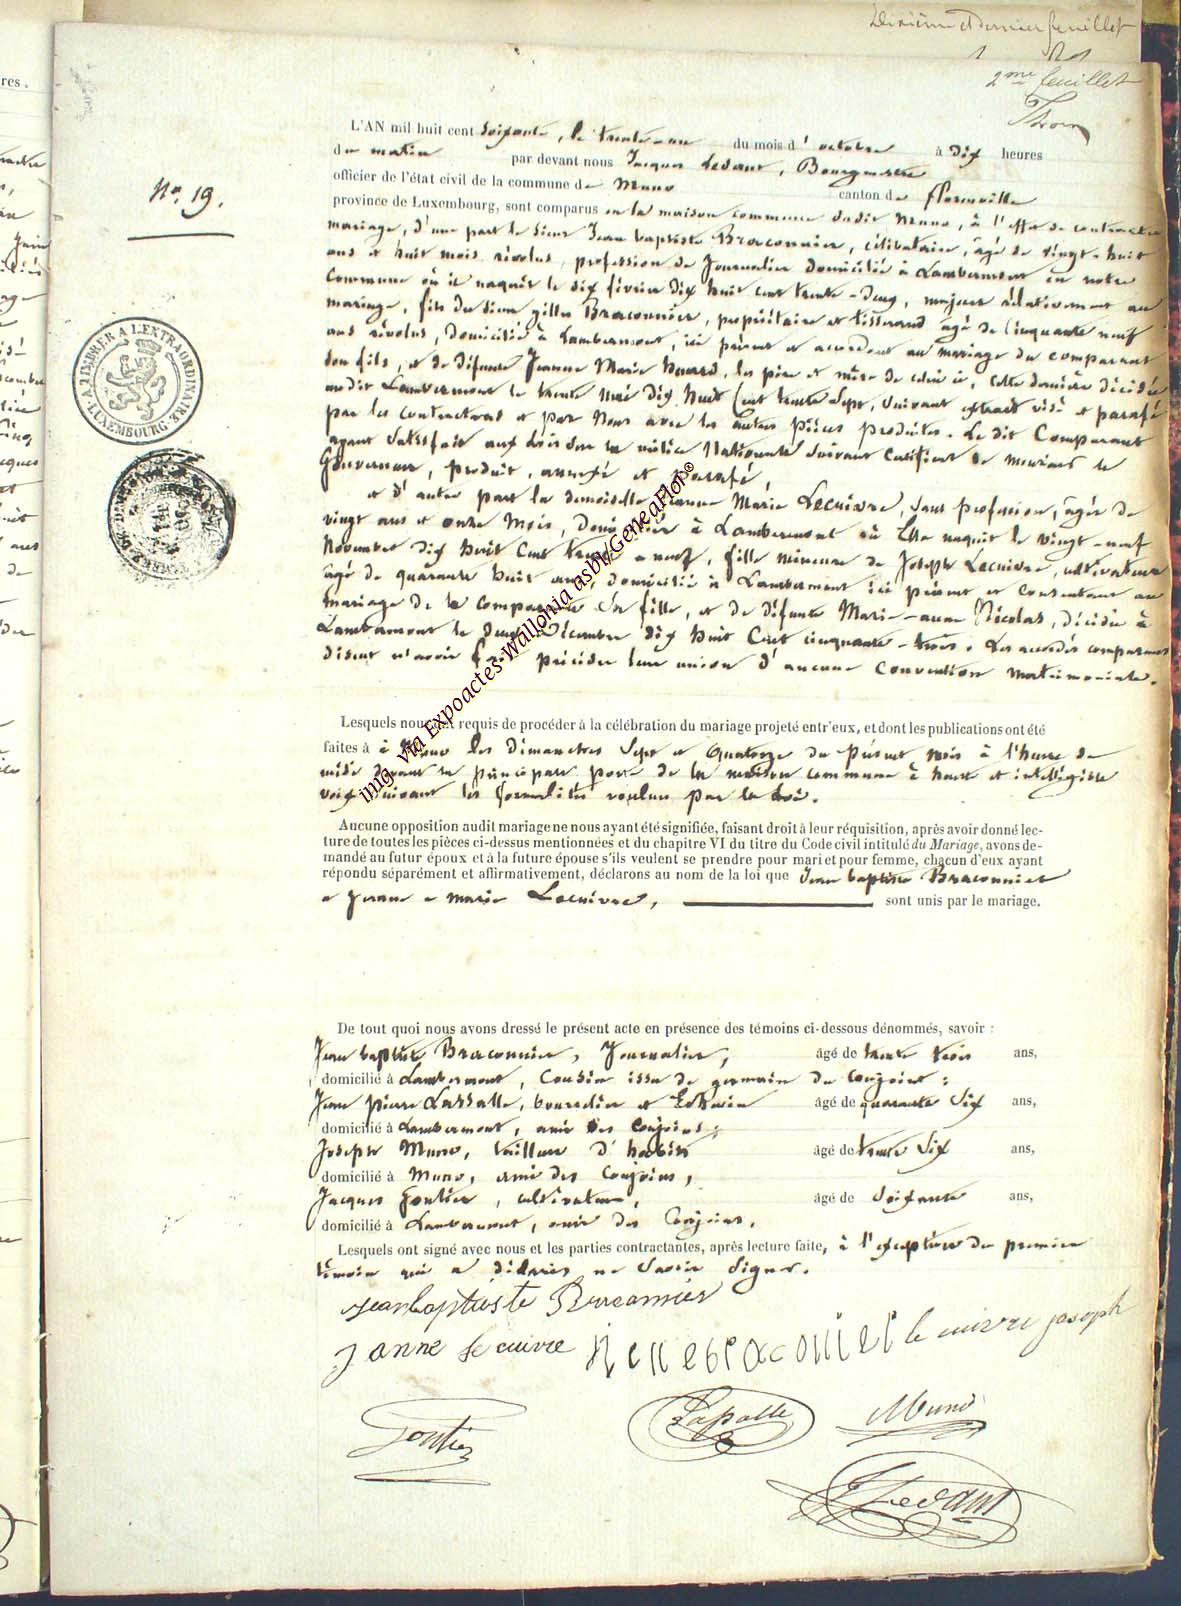 Dixième et dernier feuillet
2me feuillet
Thron
res.
No. 19.
A TIMBRER A L'EXTRAORDINAIRE
LUXEMBOURG
L'AN mil huit cent soixante, le trente-un du mois d'octobre à dix heures
du matin par devant nous Jacques Ledant, Bourgmestre
officier de l'état civil de la commune de Muno canton de florenville
province de Luxembourg, sont comparus en la maison commune dudit Muno, à l'effet de contracter
mariage, d'une part le sieur Jean baptiste Braconnier, célibataire, âgé de vingt-huit
ans et huit mois révolus, profession de Journalier domicilié à Lambermont en notre
commune où il naquit le dix février dix huit cent trente-deux, majeur relativement au
mariage, fils du sieur gilles Braconnier, propriétaire et tisserand âgé de cinquante neuf
ans révolus, domicilié à Lambermont, ici présent et accordant au mariage du comparant
son fils, et de défunte Jeanne Marie, les père et mère de celui ci, cette dernière décédée
audit Lambermont le trente mai dix huit cent trente sept, suivant extrait visé et parafé
par les contractans et par Nous avec les autres pièces produites. Le dit Comparant
ayant satisfait aux lois sur la milice Nationale suivant certificat de monsieur le
Gouverneur, produit, annexé et parafé,
et d'autre part la demoiselle Jeanne Marie Lecuivre, sans profession, âgée de
vingt ans et onze mois, domiciliée à Lambermont où Elle naquit le vingt-neuf
Novembre dix huit cent trente neuf, fille mineure de Joseph Lecuivre, cultivateur
âgé de quarante huit ans, domicilié à Lambermont ici présent et consentant au
mariage de la comparante sa fille, et de défunte Marie-anne Nicolas, décédée à
Lambermont le deux Décembre dix huit cent cinquante-trois. Les accordés comparans
disent n'avoir fait précéder leur union d'aucune convention matrimoniale.
Lesquels nous ont requis de procéder à la célébration du mariage projeté entr'eux, et dont les publications ont été
faites à à Muno les dimanches sept et quatorze du présent mois à l'heure de
midi devant la principale porte de la maison commune à haute et intelligible
voix suivant les formalités voulues par la loi.
Aucune opposition audit mariage ne nous ayant été signifiée, faisant droit à leur réquisition, après avoir donné lec-
ture de toutes les pièces ci-dessus mentionnées et du chapitre VI du titre du Code civil intitulé du Mariage, avons de-
mandé au futur époux et à la future épouse s'ils veulent se prendre pour mari et pour femme, chacun d'eux ayant
répondu séparément et affirmativement, déclarons au nom de la loi que Jean baptiste Braconnier
et Jeanne marie Lecuivre, sont unis par le mariage.
De tout quoi nous avons dressé le présent acte en présence des témoins ci-dessous dénommés, savoir :
Jean baptiste Braconnier, Journalier, âgé de trente trois ans,
domicilié à Lambermont, Cousin issu de germain du conjoint ;
Jean Pierre Lassalle, et âgé de quarante six ans,
domicilié à Lambermont, ami des conjoins ;
Joseph Muno, tailleur d'habits âgé de trente six ans,
domicilié à Muno, ami des conjoins,
Jacques Gontier, cultivateur, âgé de soixante ans,
domicilié à Lambermont, ami des Conjoins.
Lesquels ont signé avec nous et les parties contractantes, après lecture faite, à l'exception du premier
témoin qui a déclaré ne savoir signer.
jean baptiste Braconnier
janne le cuivre
le cuivre joseph
Gontier
Lassalle
Muno
J Ledant
img. via Expoactes-Wallonia asbl/GeneaFlor©